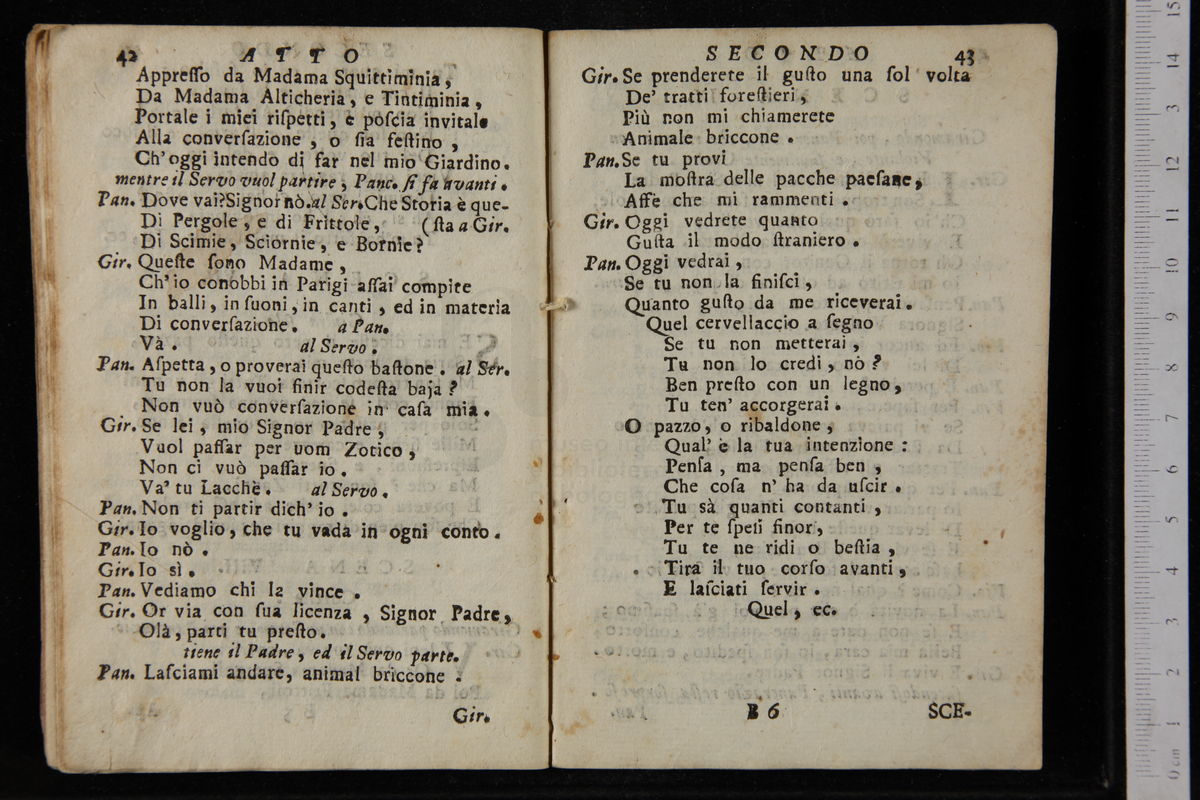 42 ATTO
Appreſſo da Madama Squittiminia,
Da Madama Alticheria, e Tintiminia,
Portale i miei riſpetti, e pòſcia invitale
Alla converſazione, o ſia feſtino,
Ch' oggi intendo di far nel mio Giardino.
mentre il Servo vuol partire, Panc. ſi fa avanti.
Pan. Dove vai? Signor nò. al Ser. Che Storia è que-
Di Pergole, e di Frittole, (ſta a Gir.
Di Scimie, Sciornie, e Bornie?
Gir. Queſte ſono Madame,
Ch' io conobbi in Parigi aſſai compite
In balli, in ſuoni, in canti, ed in materia
Di converſazione. a Pan.
Và. al Servo.
Pan. Aſpetta, o proverai queſto baſtone. al Ser.
Tu non la vuoi finir codeſta baja?
Non vuò converſazione in caſa mia.
Gir. Se lei, mio Signor Padre,
Vuol paſſar per uom Zotico,
Non ci vuò paſſar io.
Va' tu Lacchè. al Servo.
Pan. Non ti partir dich' io.
Gir. Io voglio, che tu vada in ogni conto.
Pan. Io nò.
Gir. Io sì.
Pan. Vediamo chi la vince.
Gir. Or via con ſua licenza, Signor Padre,
Olà, parti tu preſto.
tiene il Padre, ed il Servo parte.
Pan. Laſciami andare, animal briccone.
Gir.
SECONDO 43
Gir. Se prenderete il guſto una ſol volta
De' tratti foreſtieri,
Più non mi chiamerete
Animale briccone.
Pan. Se tu provi
La moſtra delle pacche paeſane,
Affè che mi rammenti.
Gir. Oggi vedrete quanto
Guſta il modo ſtraniero.
Pan. Oggi vedrai,
Se tu non la finiſci,
Quanto guſto da me riceverai.
Quel cervellaccio a ſegno
Se tu non metterai,
Tu non lo credi, nò?
Ben preſto con un legno,
Tu ten' accorgerai.
O pazzo, o ribaldone,
Qual' è la tua intenzione:
Penſa, ma penſa ben,
Che coſa n' ha da uſcir.
Tu sà quanti contanti,
Per te ſpeſi finor,
Tu te ne ridi o beſtia,
Tira il tuo corſo avanti,
E laſciati ſervir.
Quel, ec.
B 6 SCE-